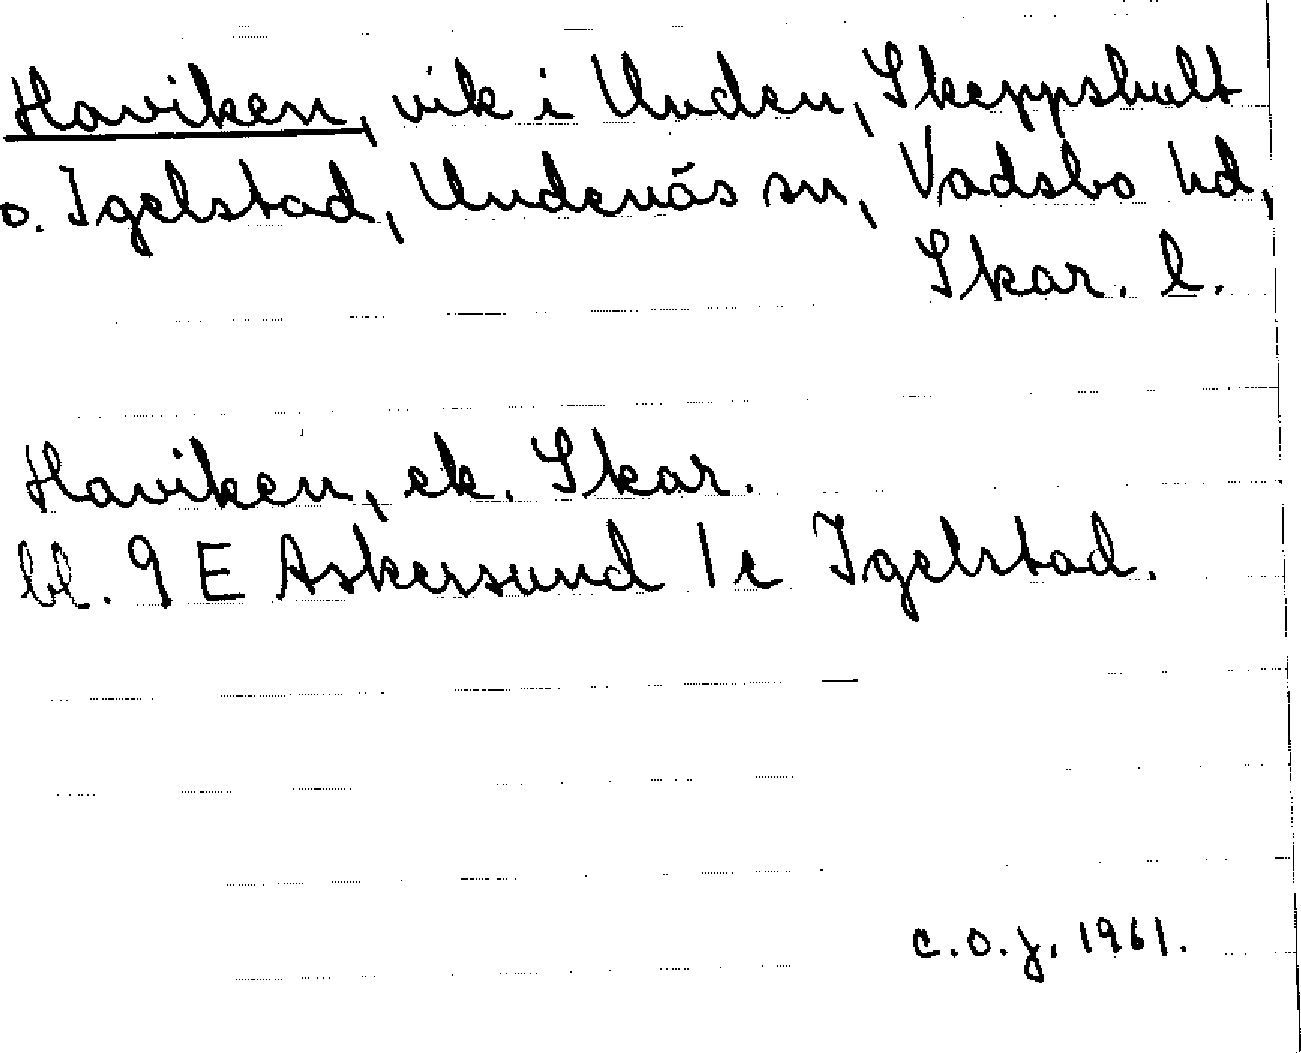 Haviken, vik i Unden, Skeppshult
o. Igelstad, Undenäs sn, Vadsbo hd,
Skar. l.
Haviken, ek. Skar.
bl. 9 E Askersund 1 c Igelstad.
c.o.j. 1961.